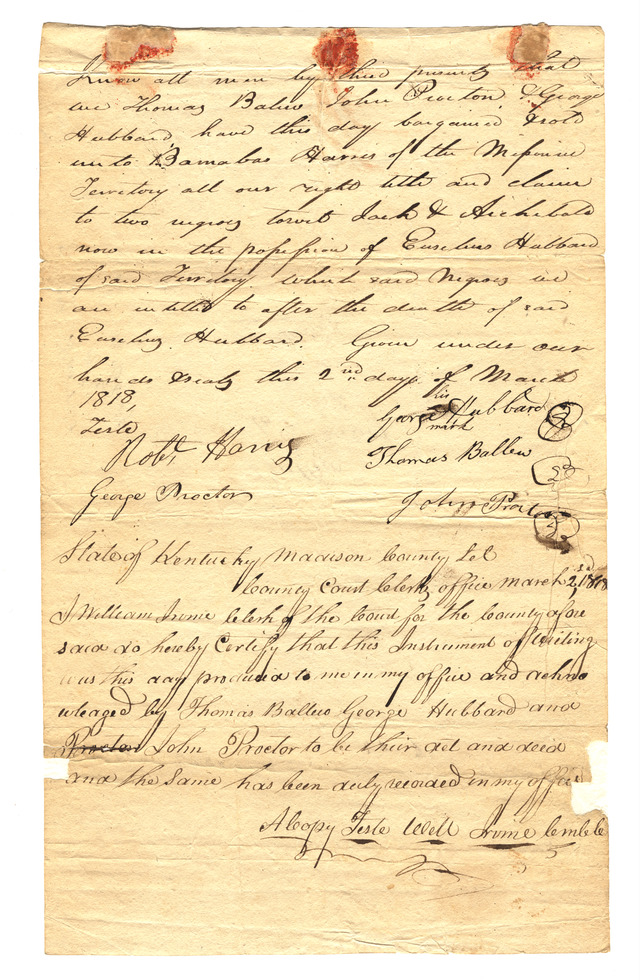 Know all men by these presents that
we Thomas Ballew John Procton & George
Hubbard, have this day bargained & sold
unto Barnabas Harris of the Missouri
Territory all our right title and claim
to two negroes towit Jack & Archibald
now in the possession of Eusebius Hubbard
of said Territory which said Negroes we
are intitled to after the death of said
Eusebius Hubbard. Given under our
hands & seals this 2nd day of March
1818,
Teste
his
George Hubbard
mark
Robt. Harris
Thomas Ballew
George Proctor
John Proctor
State of Kentucky Madison County Sct
County Court Clerks office March 2nd 1818
I William Irvine Clerk of the Court for the County afore
said do hereby Certify that this Instrument of Writing
was this day produced to me in my office and ackno
wleaged by Thomas Ballew George Hubbard and
Proctor John Proctor to be their act and deed
and the same has been duly recorded in my office
A Copy Teste Will Irvine